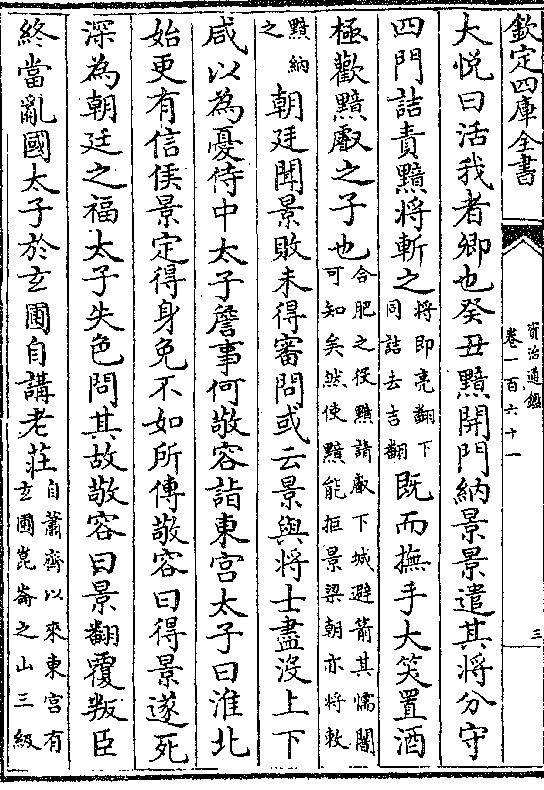 欽定四庫全書
資治通鑑
卷一百六十一
三
大悅曰活我者卿也癸丑黯開門納景景遣其將分守
四門詰責黯將斬之
將即亮翻下
同詰去吉翻
既而撫手大笑置酒
極歡黯叡之子也
合肥之役黯請叡下城避箭其懦闇
可知矣然使黯能拒景梁朝亦將敕
黯納
之
朝廷聞景敗未得審問或云景與將士盡沒上下
咸以為憂侍中太子詹事何敬容詣東宮太子曰淮北
始更有信侯景定得身免不如所傳敬容曰得景遂死
深為朝廷之福太子失色問其故敬容曰景翻覆叛臣
終當亂國太子於玄圃自講老莊
自蕭齊以來東宮有
玄圃崑崙之山三級